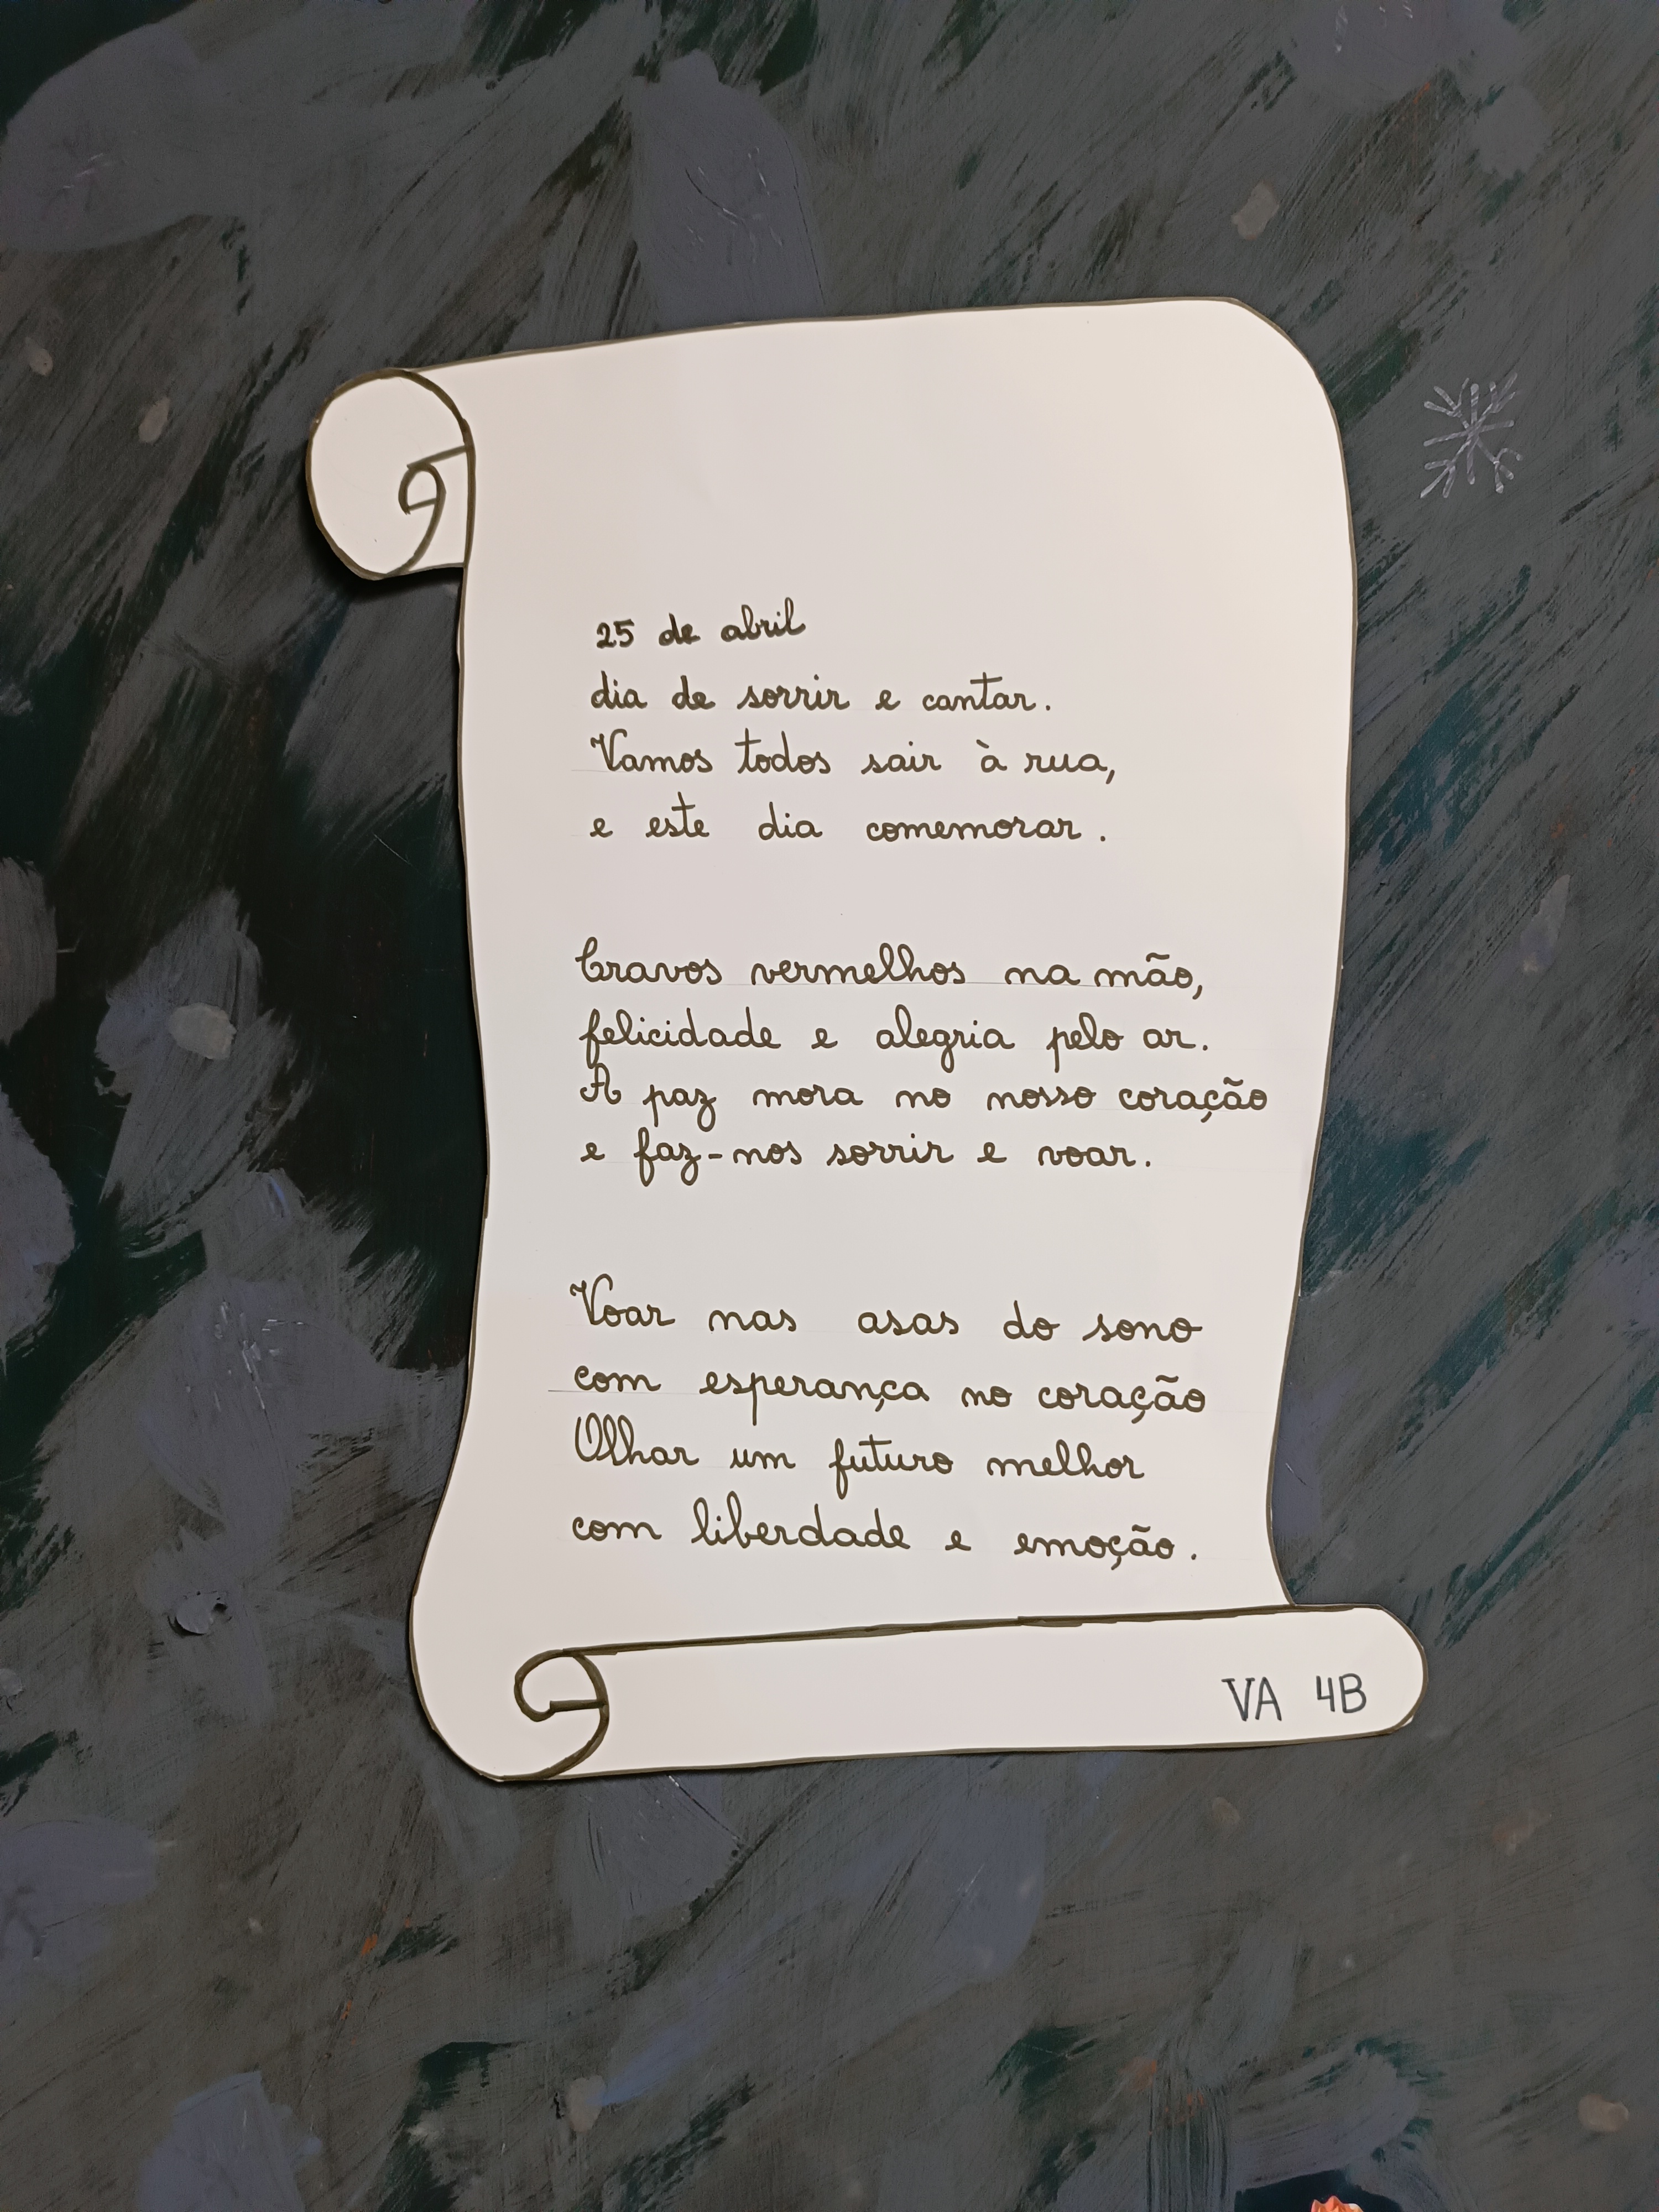 25 de abril
dia de sorrir e cantar.
Vamos todos sair à rua,
e este dia comemorar.
Cravos vermelhos na mão,
felicidade e alegria pelo ar.
A paz mora no nosso coração
e faz-nos sorrir e voar.
Voar nas asas do sono
com esperança no coração
Olhar um futuro melhor
com liberdade e emoção.
VA 4B